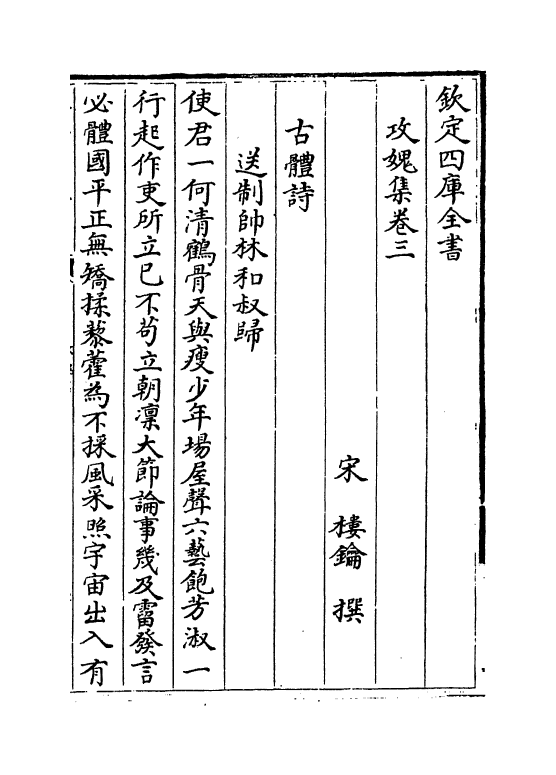 欽定四庫全書
攻媿集卷三
宋 樓鑰 撰
古體詩
送制帥林和叔歸
使君一何清鶴骨天與瘦少年場屋聲六藝飽芳潄一
行起作吏所立已不苟立朝凜大節論事幾及霤發言
必體國平正無矯揉藜藿為不採風采照宇宙出入有